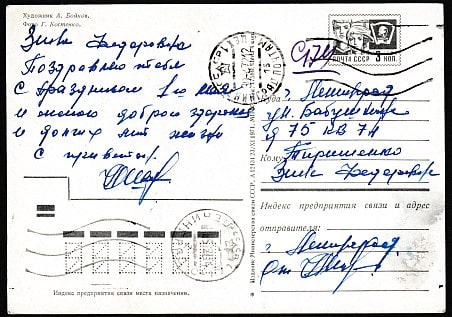 Художник А. Бойков.
Фото Г. Костенко.
Зина Федоровна
Поздравляю тебя
с праздником 1ое мая
и желаю доброго здоровья
и долгих лет жизни
с приветом
ПОЧТА СССР 3 КОП.
Куда
г. Ленинград
ул. Бабушкина
д 75 кв 74
Кому
Зине Федоровне
Индекс предприятия связи и адрес
отправителя:
г. Ленинград
от
Индекс предприятия связи места назначения.